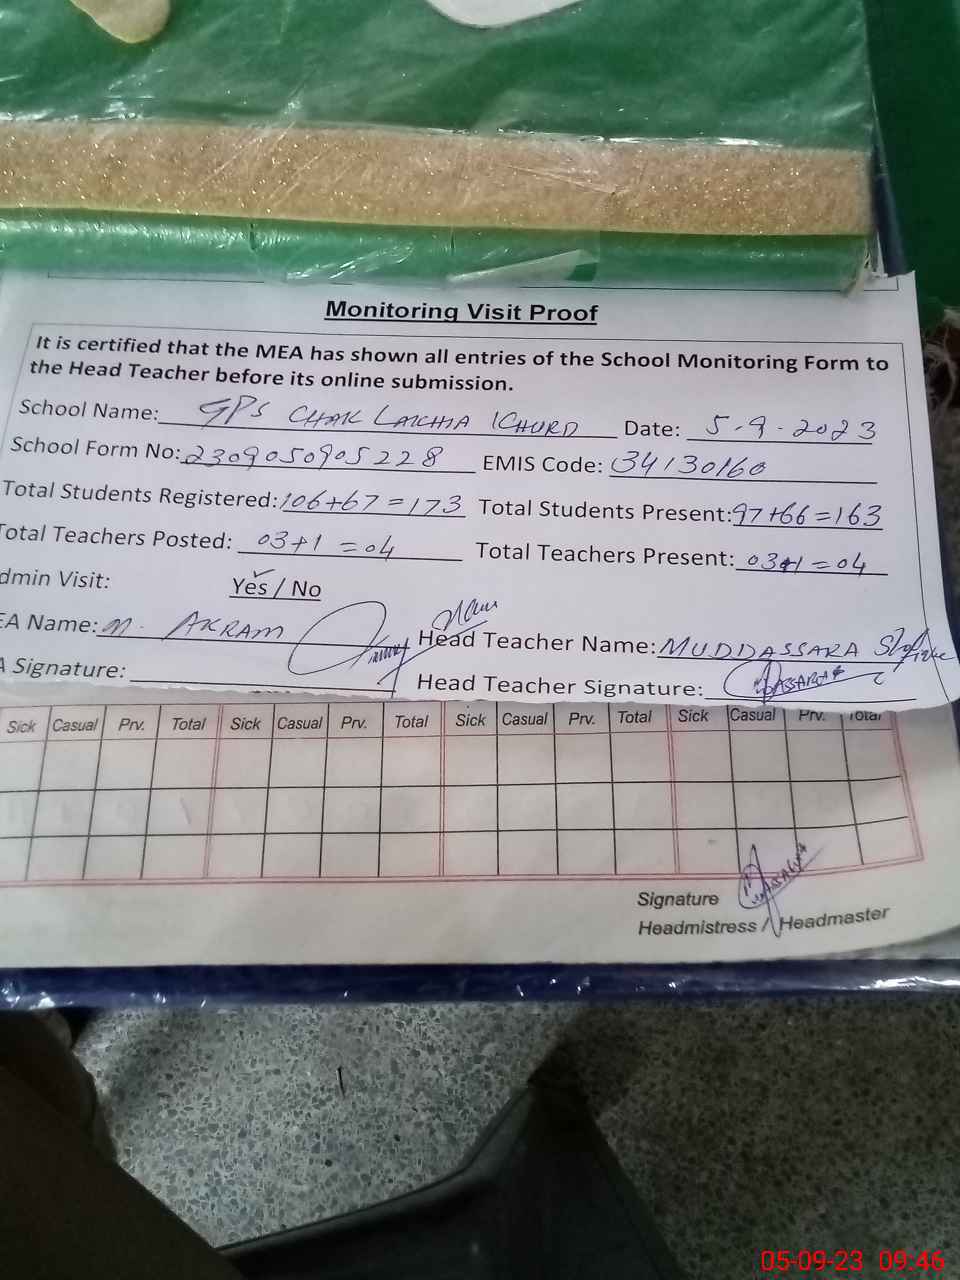 Monitoring Visit Proof
It is certified that the MEA has shown all entries of the School Monitoring Form to
the Head Teacher before its online submission.
School Name: GPS CHAK LAKHIA KHURD Date: 5.9.2023
School Form No: 2309050905228 EMIS Code: 34130160
Total Students Registered: 106+67=173 Total Students Present: 97+66=163
Total Teachers Posted: 03+1=04 Total Teachers Present: 03+1=04
dmin Visit: Yes / No
EA Name: M. AKRAM Head Teacher Name: MUDDASSARA
A Signature: Head Teacher Signature:
Sick Casual Prv. Total Sick Casual Prv. Total Sick Casual Prv. Total Sick Casual Prv. Total
Signature
Headmistress / Headmaster
05-09-23 09:46